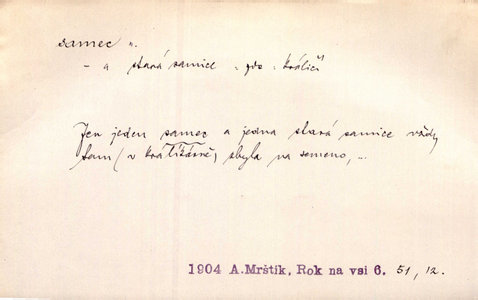 samec m.
- a stará samice
Jen jeden samec a jedna stará samice vždy
tam (v králíkárně) zbyla na semeno, ...
1904 A.Mrštík, Rok na vsi 6. 51, 12.